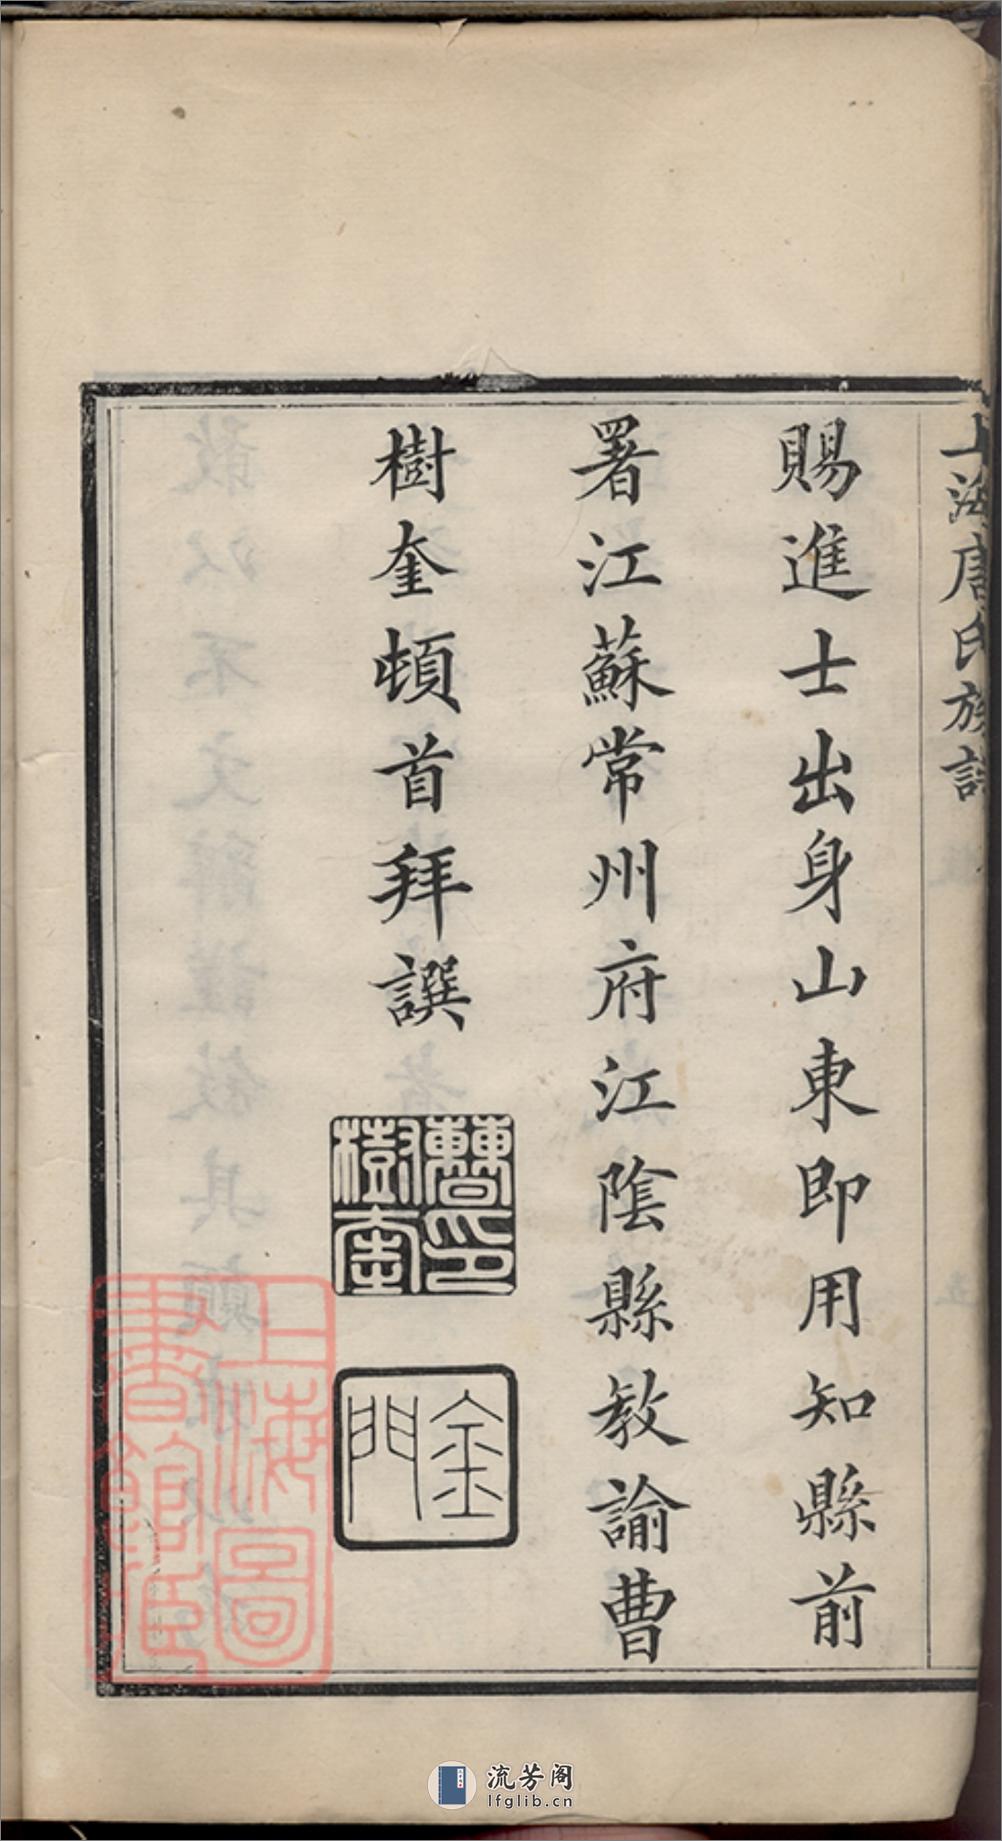 上海唐氏族譜
賜進士出身山東即用知縣前
署江蘇常州府江陰縣教諭曹
樹奎頓首拜譔
曹印樹奎
金門
上海圖書館藏
流芳阁
lfglib.cn